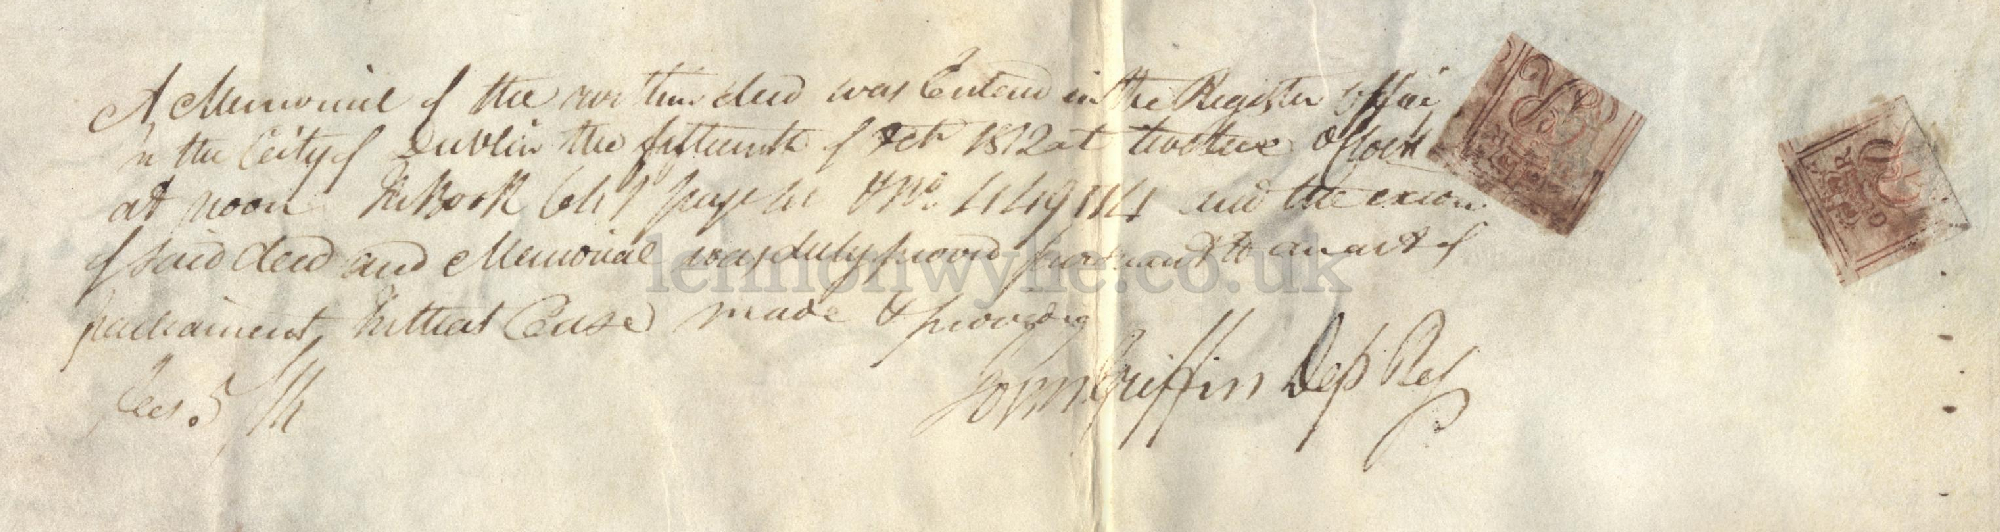 A Memorial of the within deed was Entered in the Register office
in the City of Dublin the fifteenth of Feb 1812 at twelve o Clock
at noon In Book page & No. and the exeon
of said deed and Memorial was duly proved pursuant to an act of
parliament, In that Case made & provided
John Griffin Dep Reg
lennonwylie.co.uk